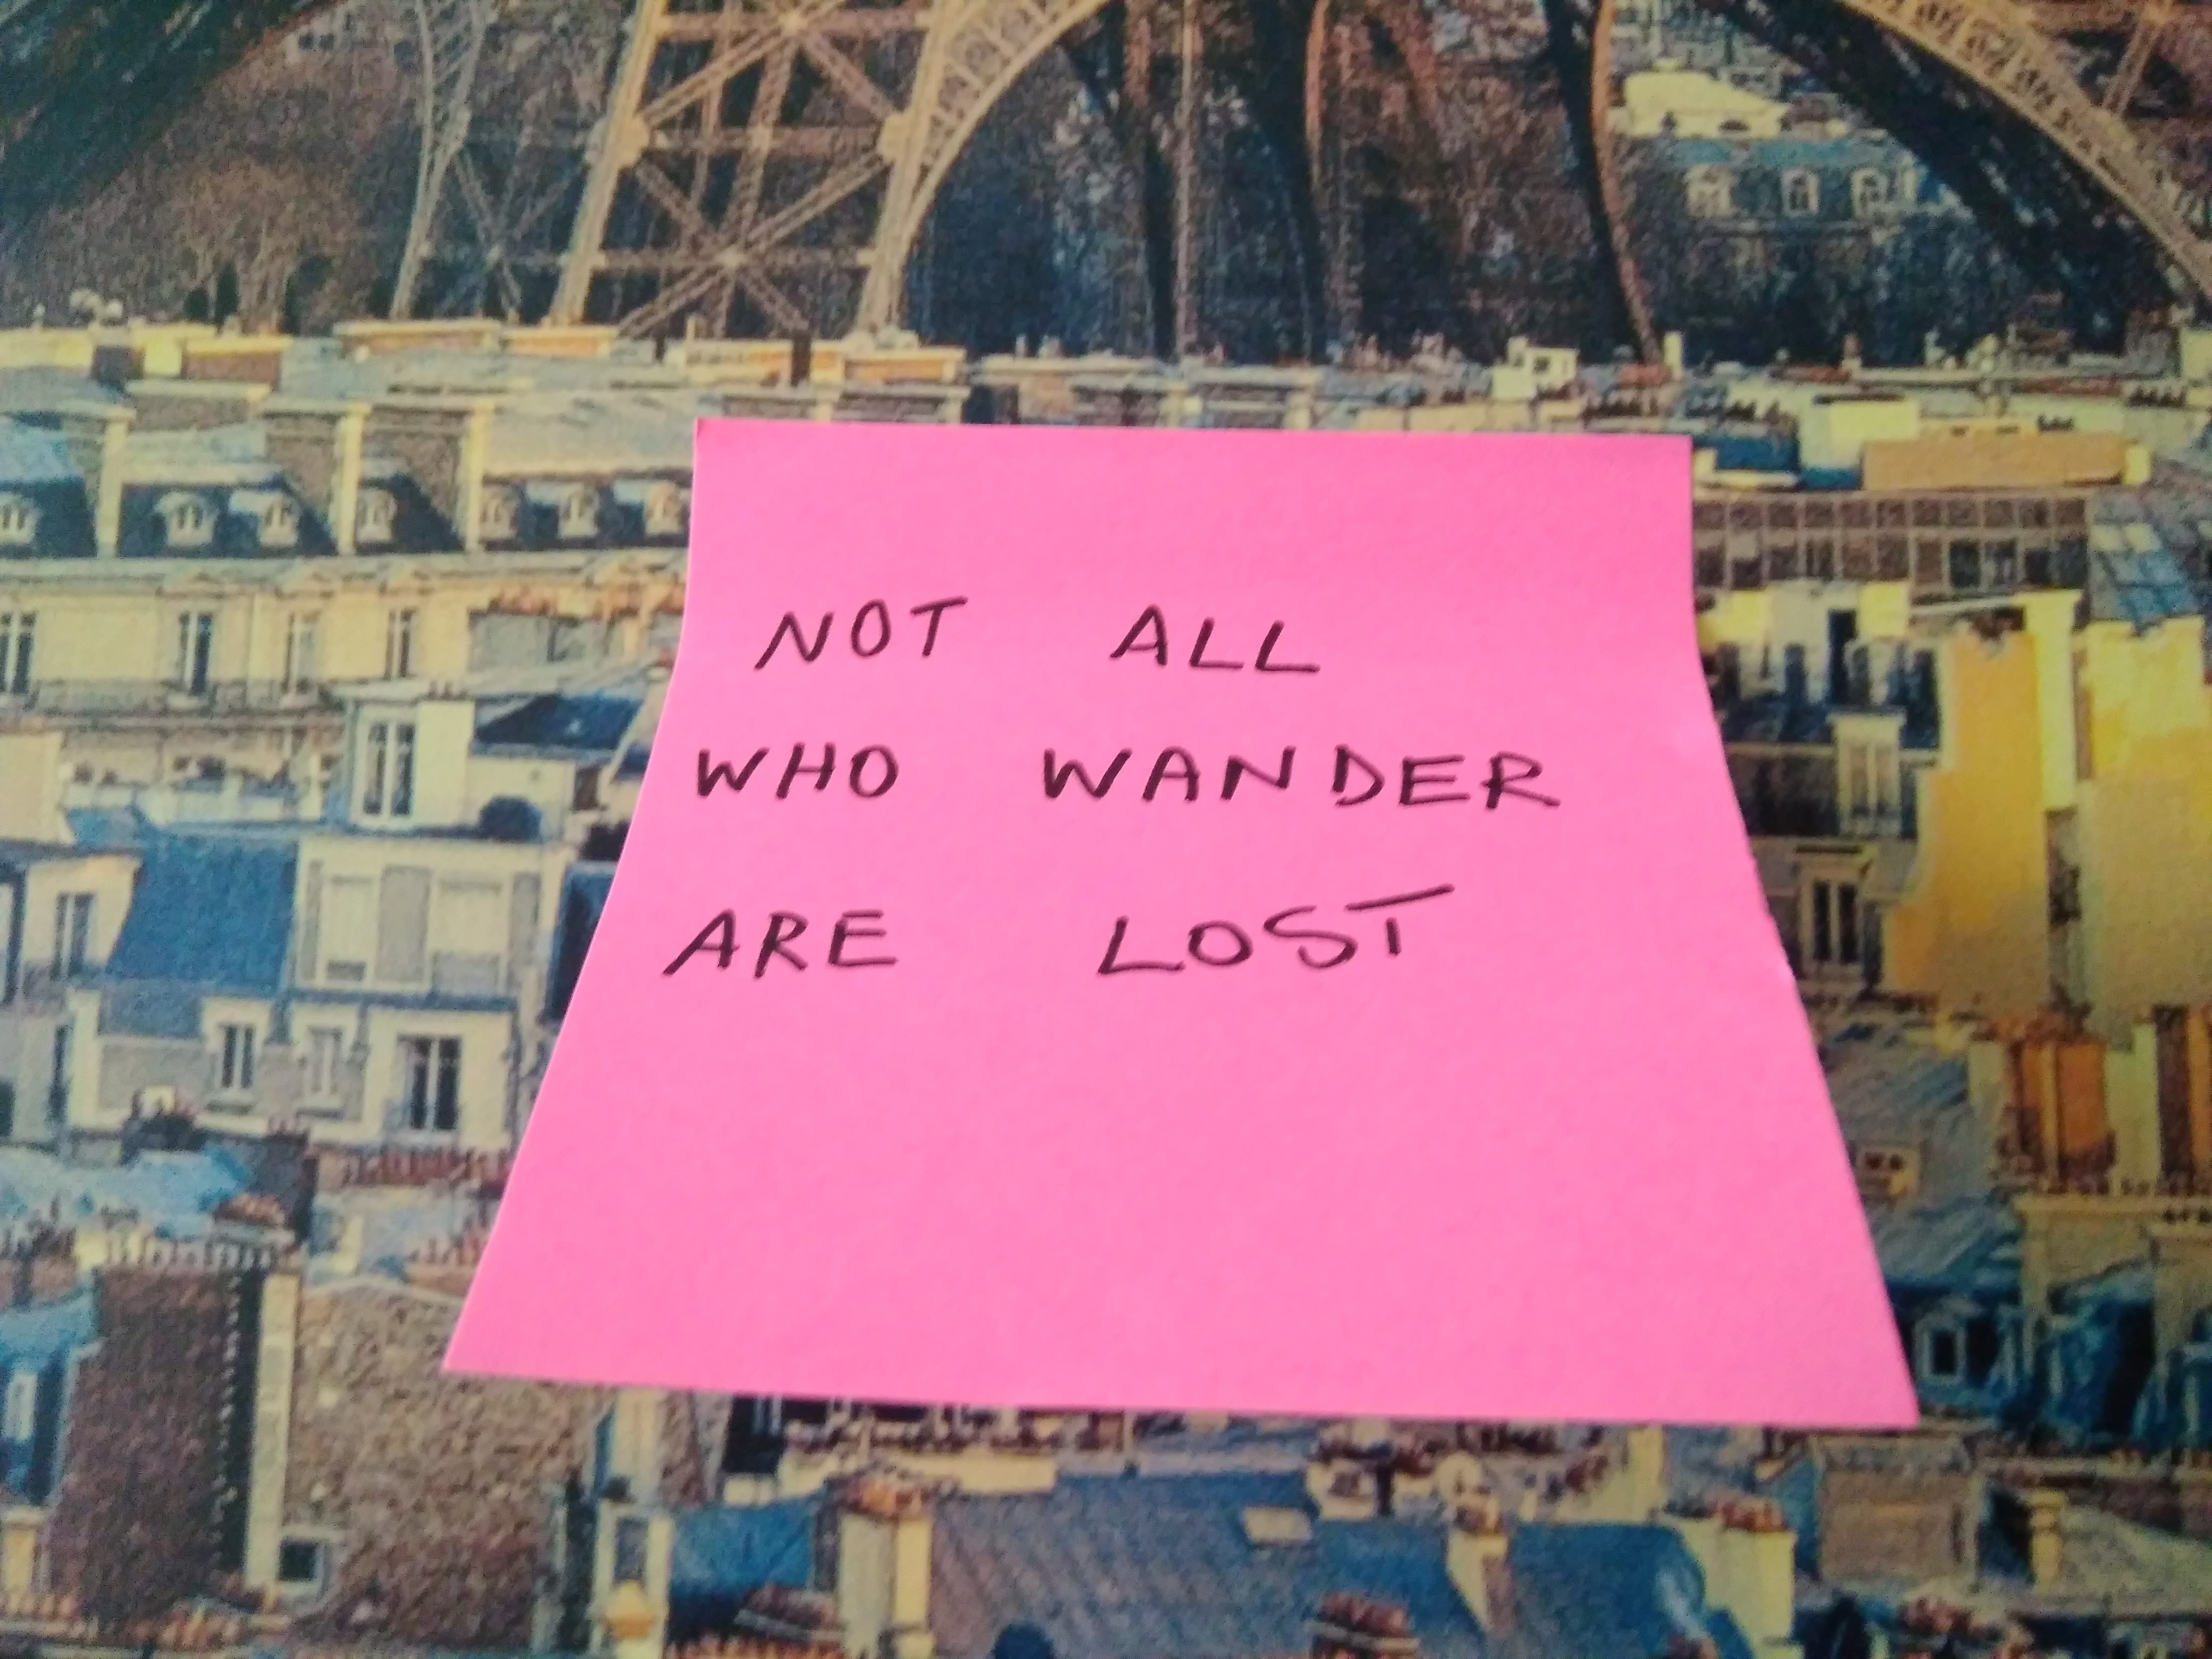 NOT ALL
WHO WANDER
ARE LOST